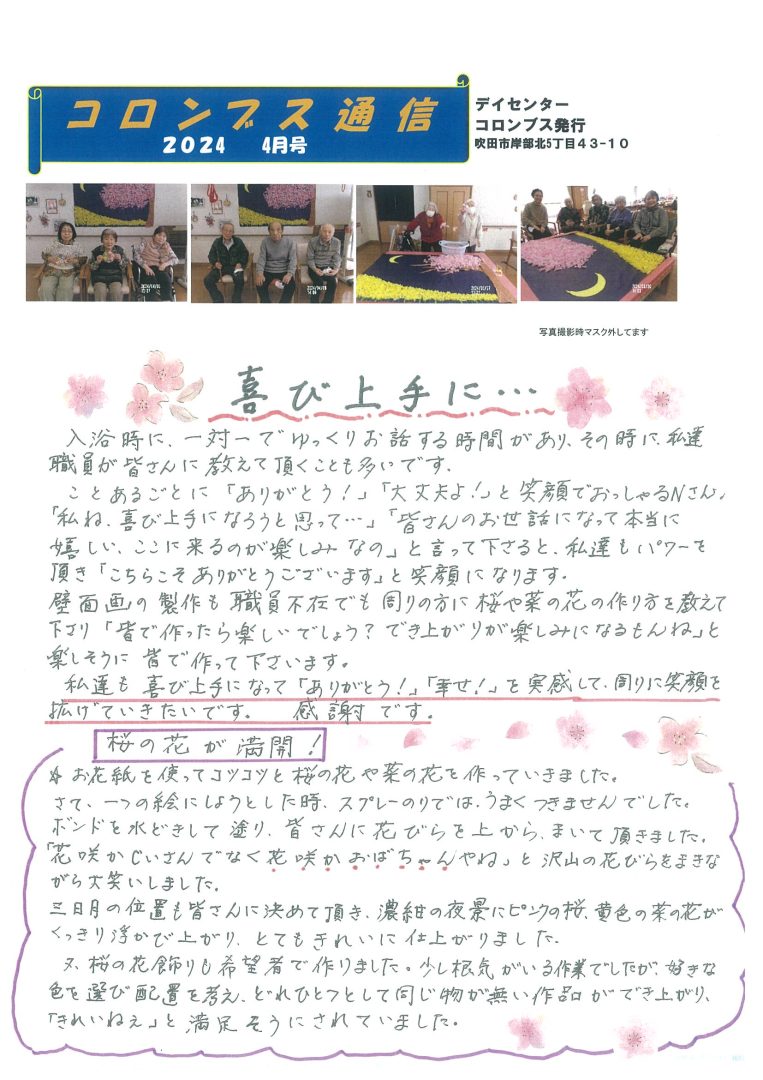 コロンブス通信
2024 4月号
デイセンター
コロンブス発行
吹田市岸部北5丁目43-10
写真撮影時マスク外してます
喜び上手に…
入浴時に、一対一でゆっくりお話する時間があり、その時に、私達
職員が皆さんに教えて頂くことも多いです。
ことあるごとに「ありがとう！」「大丈夫よ！」と笑顔でおっしゃるNさん。
「私ね、喜び上手になろうと思って…」「皆さんのお世話になって本当に
嬉しい、ここに来るのが楽しみなの」と言って下さると、私達もパワーを
頂き「こちらこそありがとうございます」と笑顔になります。
壁面画の製作も職員不在でも周りの方に桜や菜の花の作り方を教えて
下さり「皆で作ったら楽しいでしょう？でき上がりが楽しみになるもんね」と
楽しそうに皆で作って下さいます。
私達も喜び上手になって「ありがとう！」「幸せ！」を実感して、周りに笑顔を
拡げていきたいです。 感謝です。
桜の花が満開！
お花紙を使ってコツコツと桜の花や菜の花を作っていきました。
さて、一つの絵にしようとした時、スプレーのりでは、うまくつきませんでした。
ボンドを水どきして塗り、皆さんに花びらを上から、まいて頂きました。
「花咲かじいさんでなく花咲かおばちゃんやね」と沢山の花びらをまきな
がら大笑いしました。
三日月の位置も皆さんに決めて頂き、濃紺の夜景にピンクの桜、黄色の菜の花が
くっきり浮かび上がり、とてもきれいに仕上がりました。
又、桜の花飾りも希望者で作りました。少し根気がいる作業でしたが、好きな
色を選び配置を考え、どれひとつとして同じ物が無い作品ができ上がり、
「きれいねぇ」と満足そうにされていました。